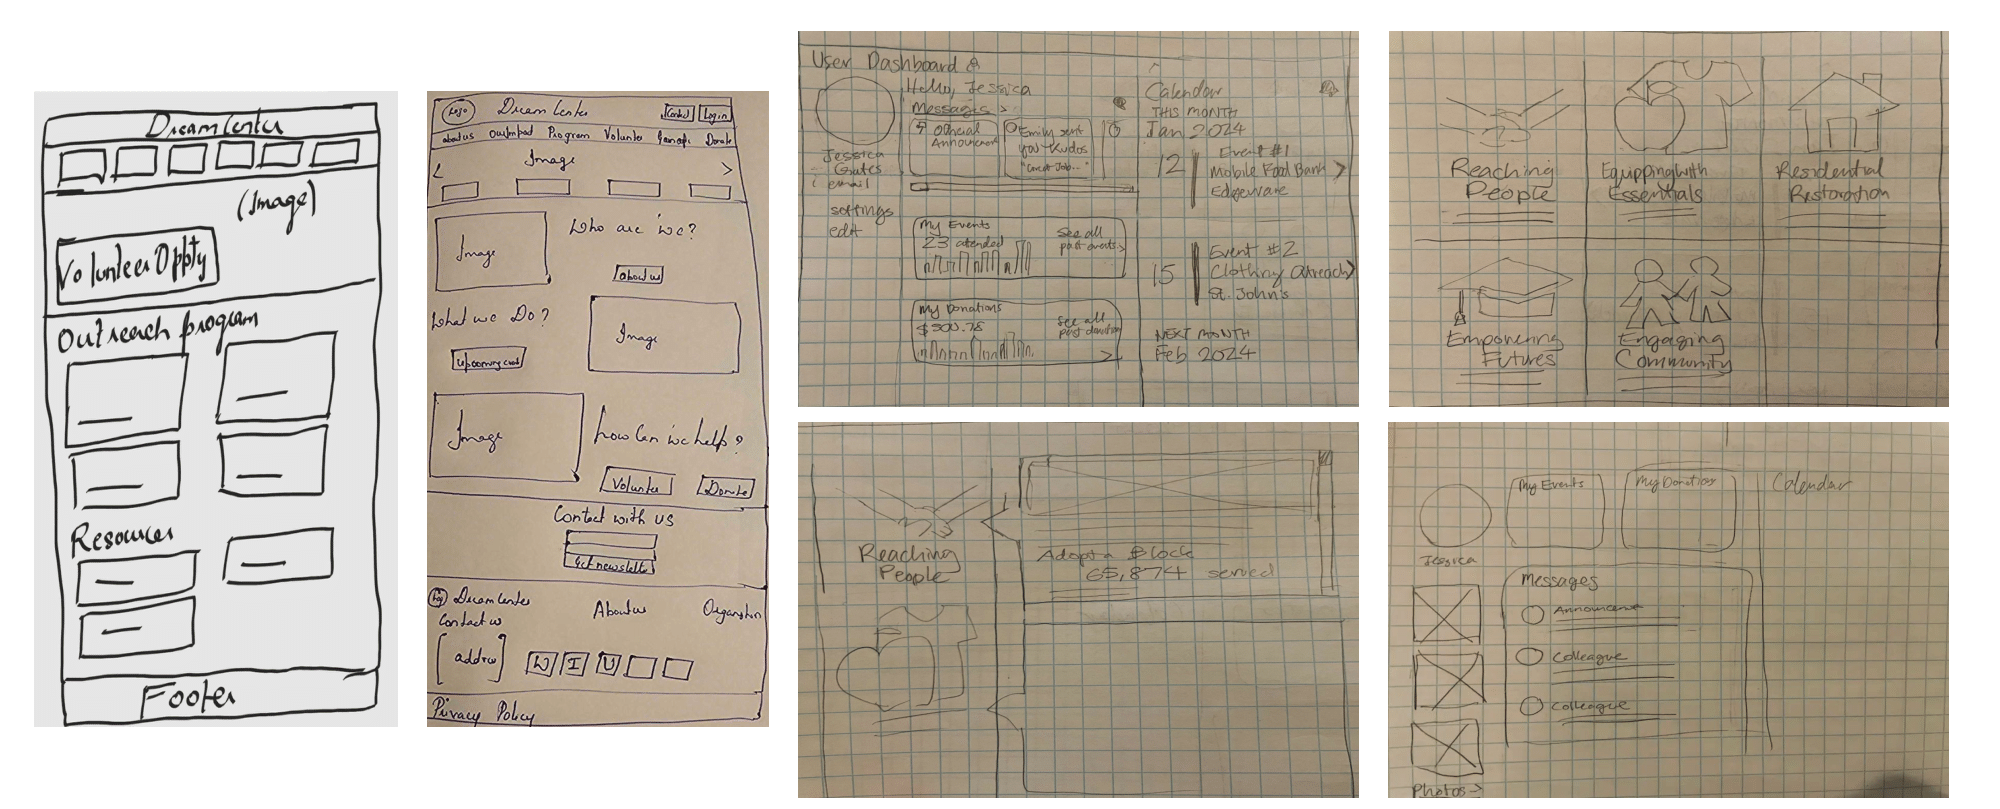 Dream Center
(Image)
Volunteer Oppty
Outreach program
Resources
Footer
Logo
Dream Center
Login
about us
Program
Donate
Image
<
>
Image
Who are we?
About us
What we Do?
Image
Image
how can we help?
Donate
Contact with us
Get newsletter
Dream Center
Contact us
About us
W I U
Privacy Policy
User Dashboard
Hello, Jessica
Messages >
Official
Emily sent
you Kudos
Jessica
Gates
email
settings
edit
My Events
23 attended
See all
past events >
My Donations
See all
past donation
>
Calendar
THIS MONTH
Jan 2024
12
Event #1
Mobile Food Bank >
Edgeware
15
Event #2
Clothing Outreach >
St. John's
NEXT MONTH
Feb 2024
Reaching
People
Equipping with
Essentials
Residential
Restoration
Empowering
Futures
Engaging
Community
Reaching
People
Adopt a Block
65,874 served
Jessica
My Events
My Donations
Calendar
Messages
Colleague
Colleague
Photos >